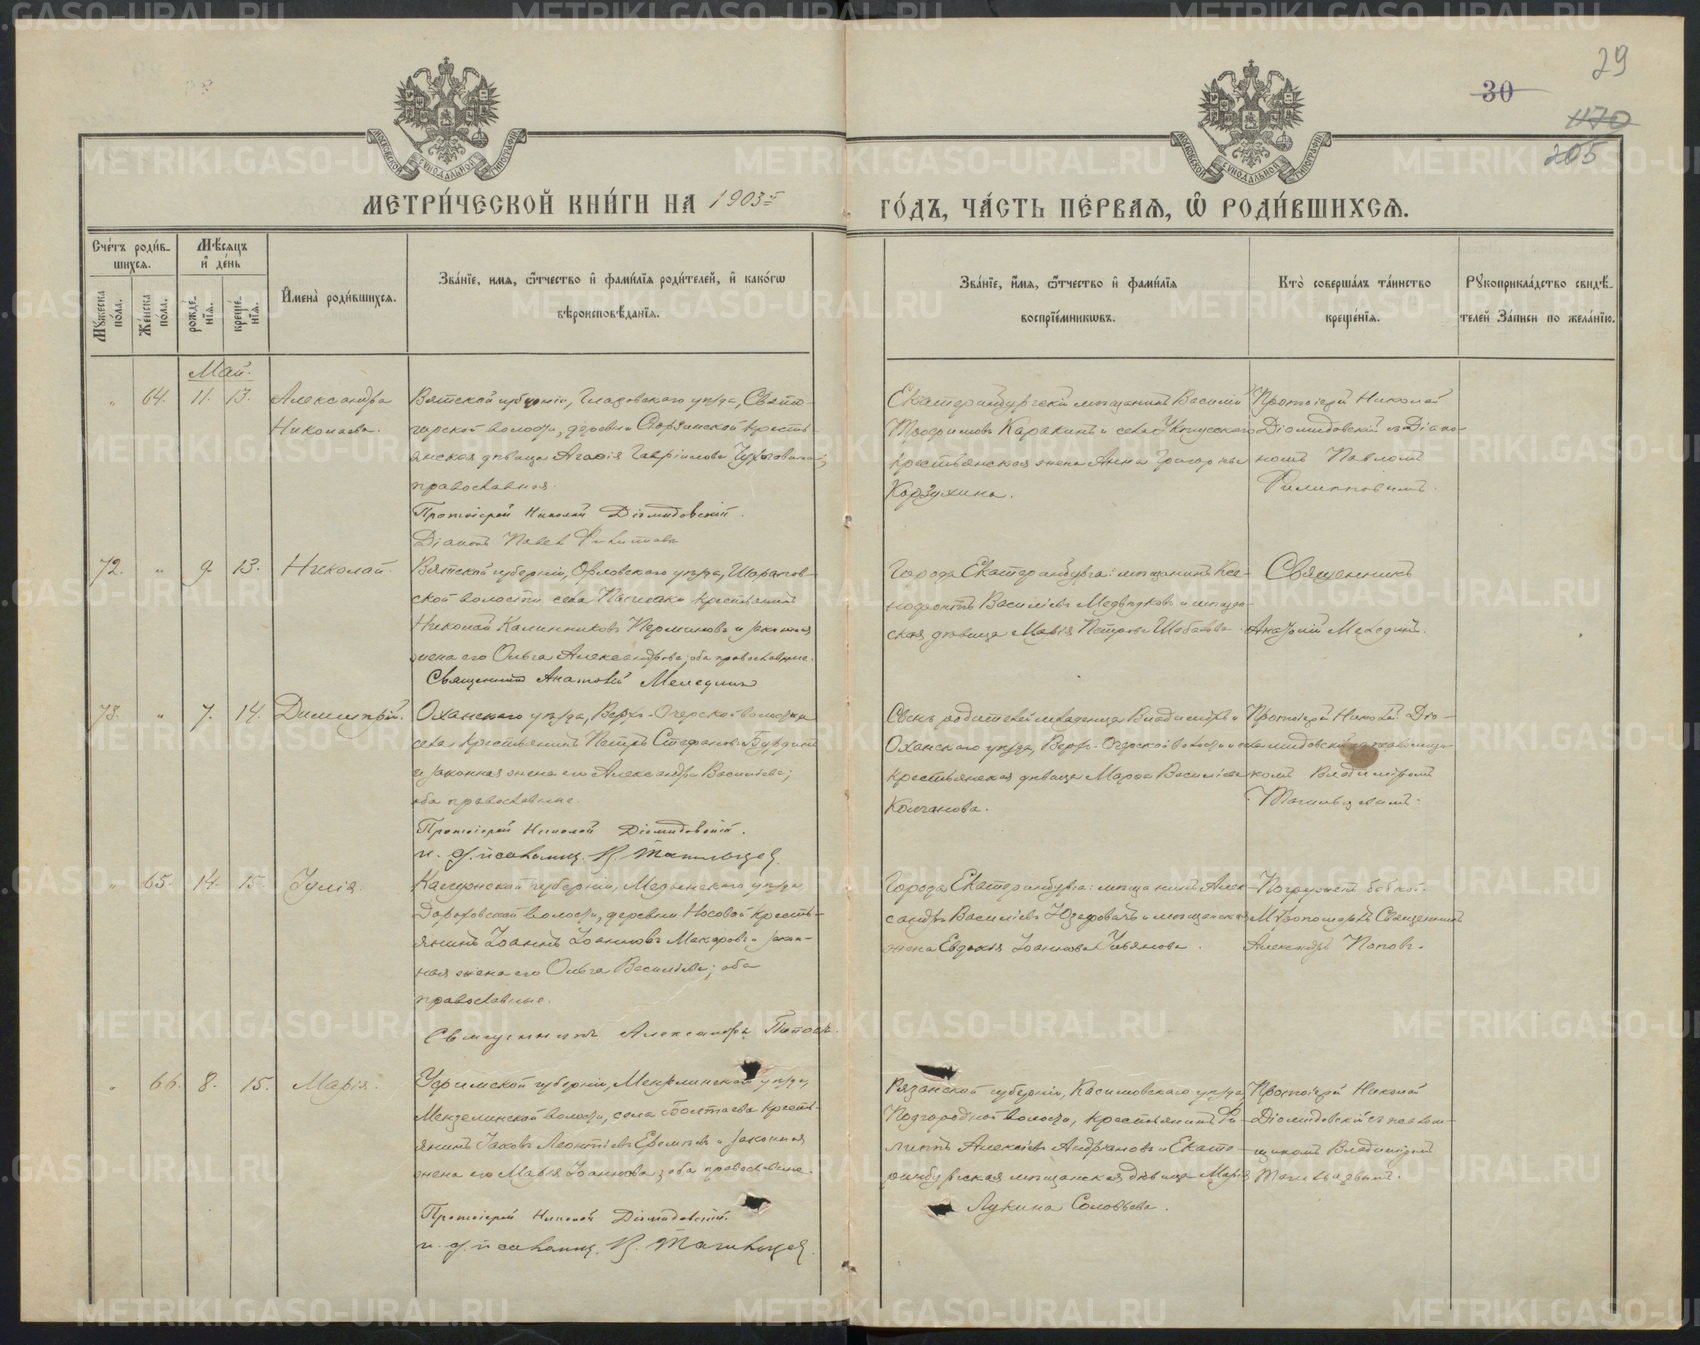 29
30
1170
205
МЕТРИ́ЧЕСКОЙ КНИ́ГИ НА 1903 г
ГО́ДЪ, ЧА́СТЬ ПЕ́РВАЯ, Ѡ РОДИ́ВШИХСЯ.
Сче́тъ роди́в-
шихся.
Му́жеска по́ла.
Же́нска по́ла.
Мѣ́сяцъ и де́нь
рожде́-нїя.
креще́-нїя.
И҆мена̀ роди́вшихся.
Зва́нїе, имя, ѻ҆́тчество и҆ фами́лїя роди́телей, и҆ како́гѡ
вѣроисповѣ́данїя.
Зва́нїе, и҆́мя, ѻ҆́тчество и҆ фами́лїя
воспрїе́мникѡвъ.
Кто̀ соверша́лъ та́инство
креще́нїя.
Рꙋкоприкла́дство свидѣ́-
телей за́писи по жела́нїю.
Май.
„ 64. 11. 13. Александра
Николаева.
Вятской губерніи, Глазовскаго уѣзда, Свято-
горской волости, деревни кресть-
янская дѣвица Агафія Гавріилова
православная.
Протоіерей Николай Діомидовскій.
Діаконъ Павел
Екатеринбургскій мѣщанинъ Василій
Трофимовъ Каракинъ и села Уктусскаго
крестьянская жена Анна Григорьева
Корзухина.
Протоіерей Николай
Діомидовскій съ Діако-
номъ Павломъ
Филипповымъ.
72. „ 9. 13. Николай.
Вятской губерніи, Орловскаго уѣзда, Шарапов-
ской волости села крестьянинъ
Николай Калинниковъ Перминовъ и законная
жена его Ольга Александрова; оба православные.
Священникъ Анатолій Мелединъ
Города Екатеринбурга: мѣщанинъ Кса-
нофонтъ Василіевъ Медвѣдковъ и мѣщан-
ская дѣвица Марія Петрова Шабалова.
Священникъ
Анатолій Мелединъ.
73. „ 7. 14. Димитрій.
Оханскаго уѣзда, Верхъ-Очерской волости и
села крестьянинъ Петръ Стефановъ Бурдинъ
и законная жена его Александра Василіева;
оба православные.
Протоіерей Николай Діомидовскій.
и. д. псаломщ. В. Тагильцев.
Сынъ родителей младенца Владиміръ и
Оханскаго уѣзда, Верхъ-Очерской волости и села
крестьянская дѣвица Марѳа Василіева
Колчанова.
Протоіерей Николай Діо-
мидовскій съ псаломщи-
комъ Владиміромъ
Тагильцевымъ.
„ 65. 14. 15. Іулія.
Калужской губерніи, Медынскаго уѣзда,
Дороховской волости, деревни Носовой кресть-
янинъ Іоаннъ Іоанновъ Макаровъ и закон-
ная жена его Ольга Василіева; оба
православные.
Священникъ Александръ Поповъ.
Города Екатеринбурга: мѣщанинъ Алек-
сандръ Василіевъ Юзефовичъ и мѣщанская
жена Евдокія Іоаннова Ульянова.
Погружена бабкой.
Мѵропомаза Священникъ
Александръ Поповъ.
„ 66. 8. 15. Марія.
Уфимской губерніи, Мензелинскаго уѣзда,
Мензелинской волости, села Боктаева кресть-
янинъ Іаковъ Леонтіевъ Еремѣевъ и законная
жена его Марія Іоаннова; оба православные.
Протоіерей Николай Діомидовскій.
и. д. псаломщ. В. Тагильцев.
Рязанской губерніи, Касимовскаго уѣзда,
Подгородной волости, крестьянинъ Фи-
липпъ Алексіевъ Андріановъ и Екате-
ринбургская мѣщанская дѣвица Марія
Лукина Соловьева.
Протоіерей Николай
Діомидовскій съ псалом-
щикомъ Владиміромъ
Тагильцевымъ.